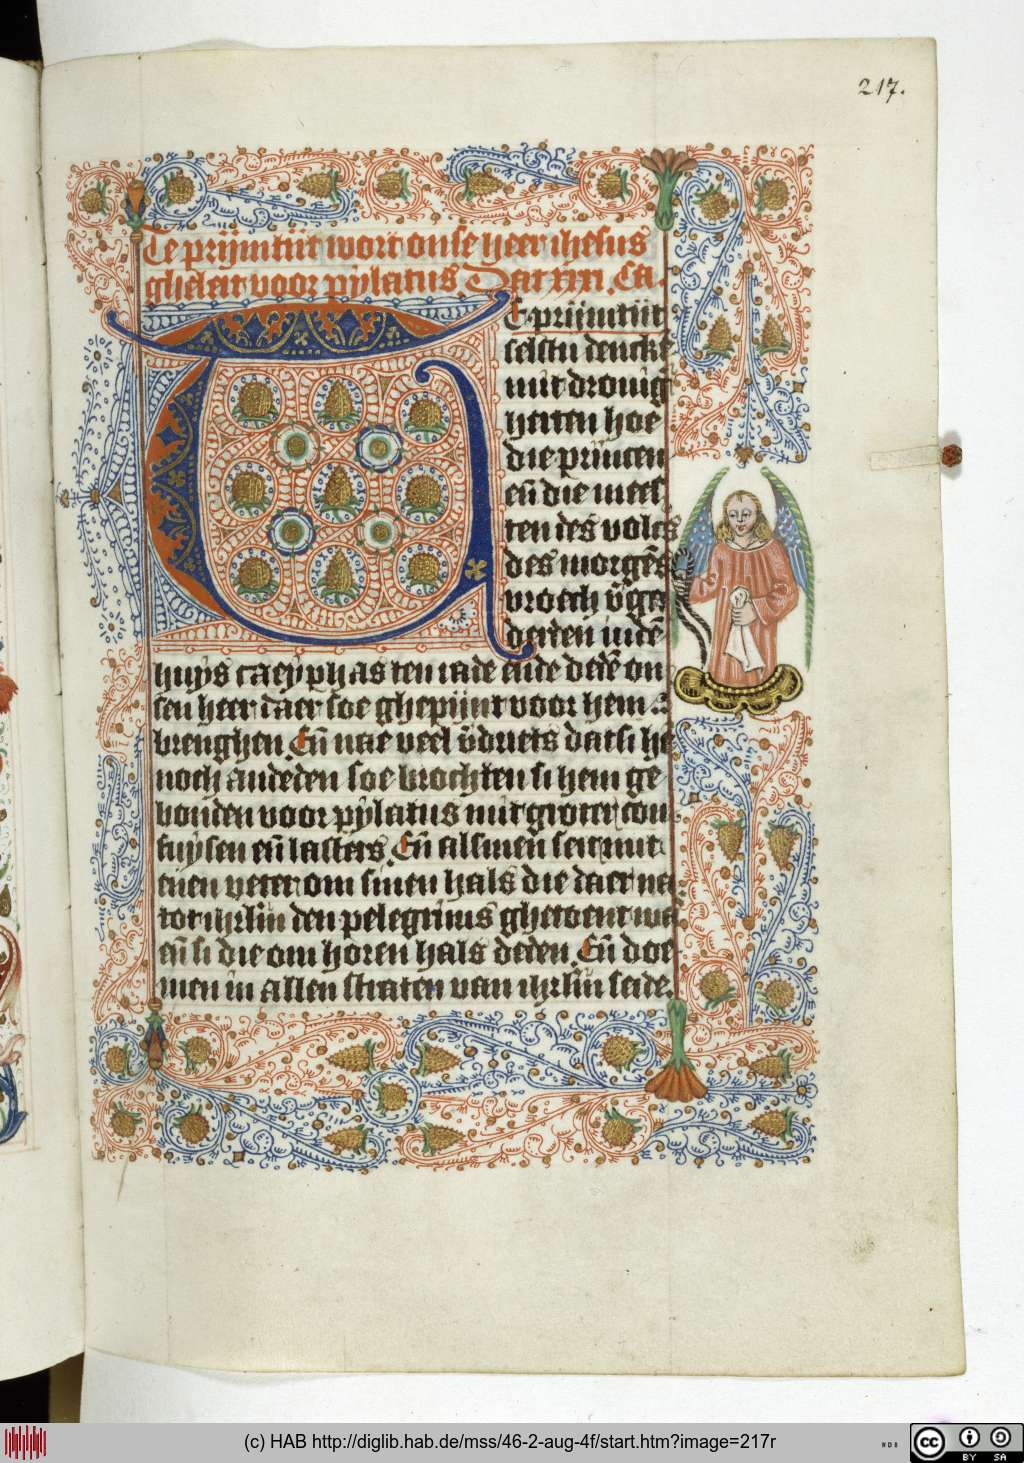 217.
Te prijmtijt wort onse heer ihesus
gheleit voor pylatus Dat xxxi. Ca.
Te prijmtijt
selstu dencken
mit drouiger
herten hoe
die princen
eñ die
ten des volcs
des morgēs
vroech v̄ga
derden indē
huys caeyphas ten rade ende dedē on
sen heer daer soe ghepijnt voor hem
brenghen. Eñ nae veel v̄driets dat si hē
noch andeden soe brochten si hem ge
bonden voor pylatus mit groter con
fuysen eñ lasters. Eñ alsmen seit mit
enen veter om sinen hals die daer na
tot ihrl̄m den pelegrims ghetoent wa
eñ si die om horen hals deden. Eñ doe
men in allen straten van ihrl̄m seide
(c) HAB http://diglib.hab.de/mss/46-2-aug-4f/start.htm?image=217r
WDB
cc
BY SA